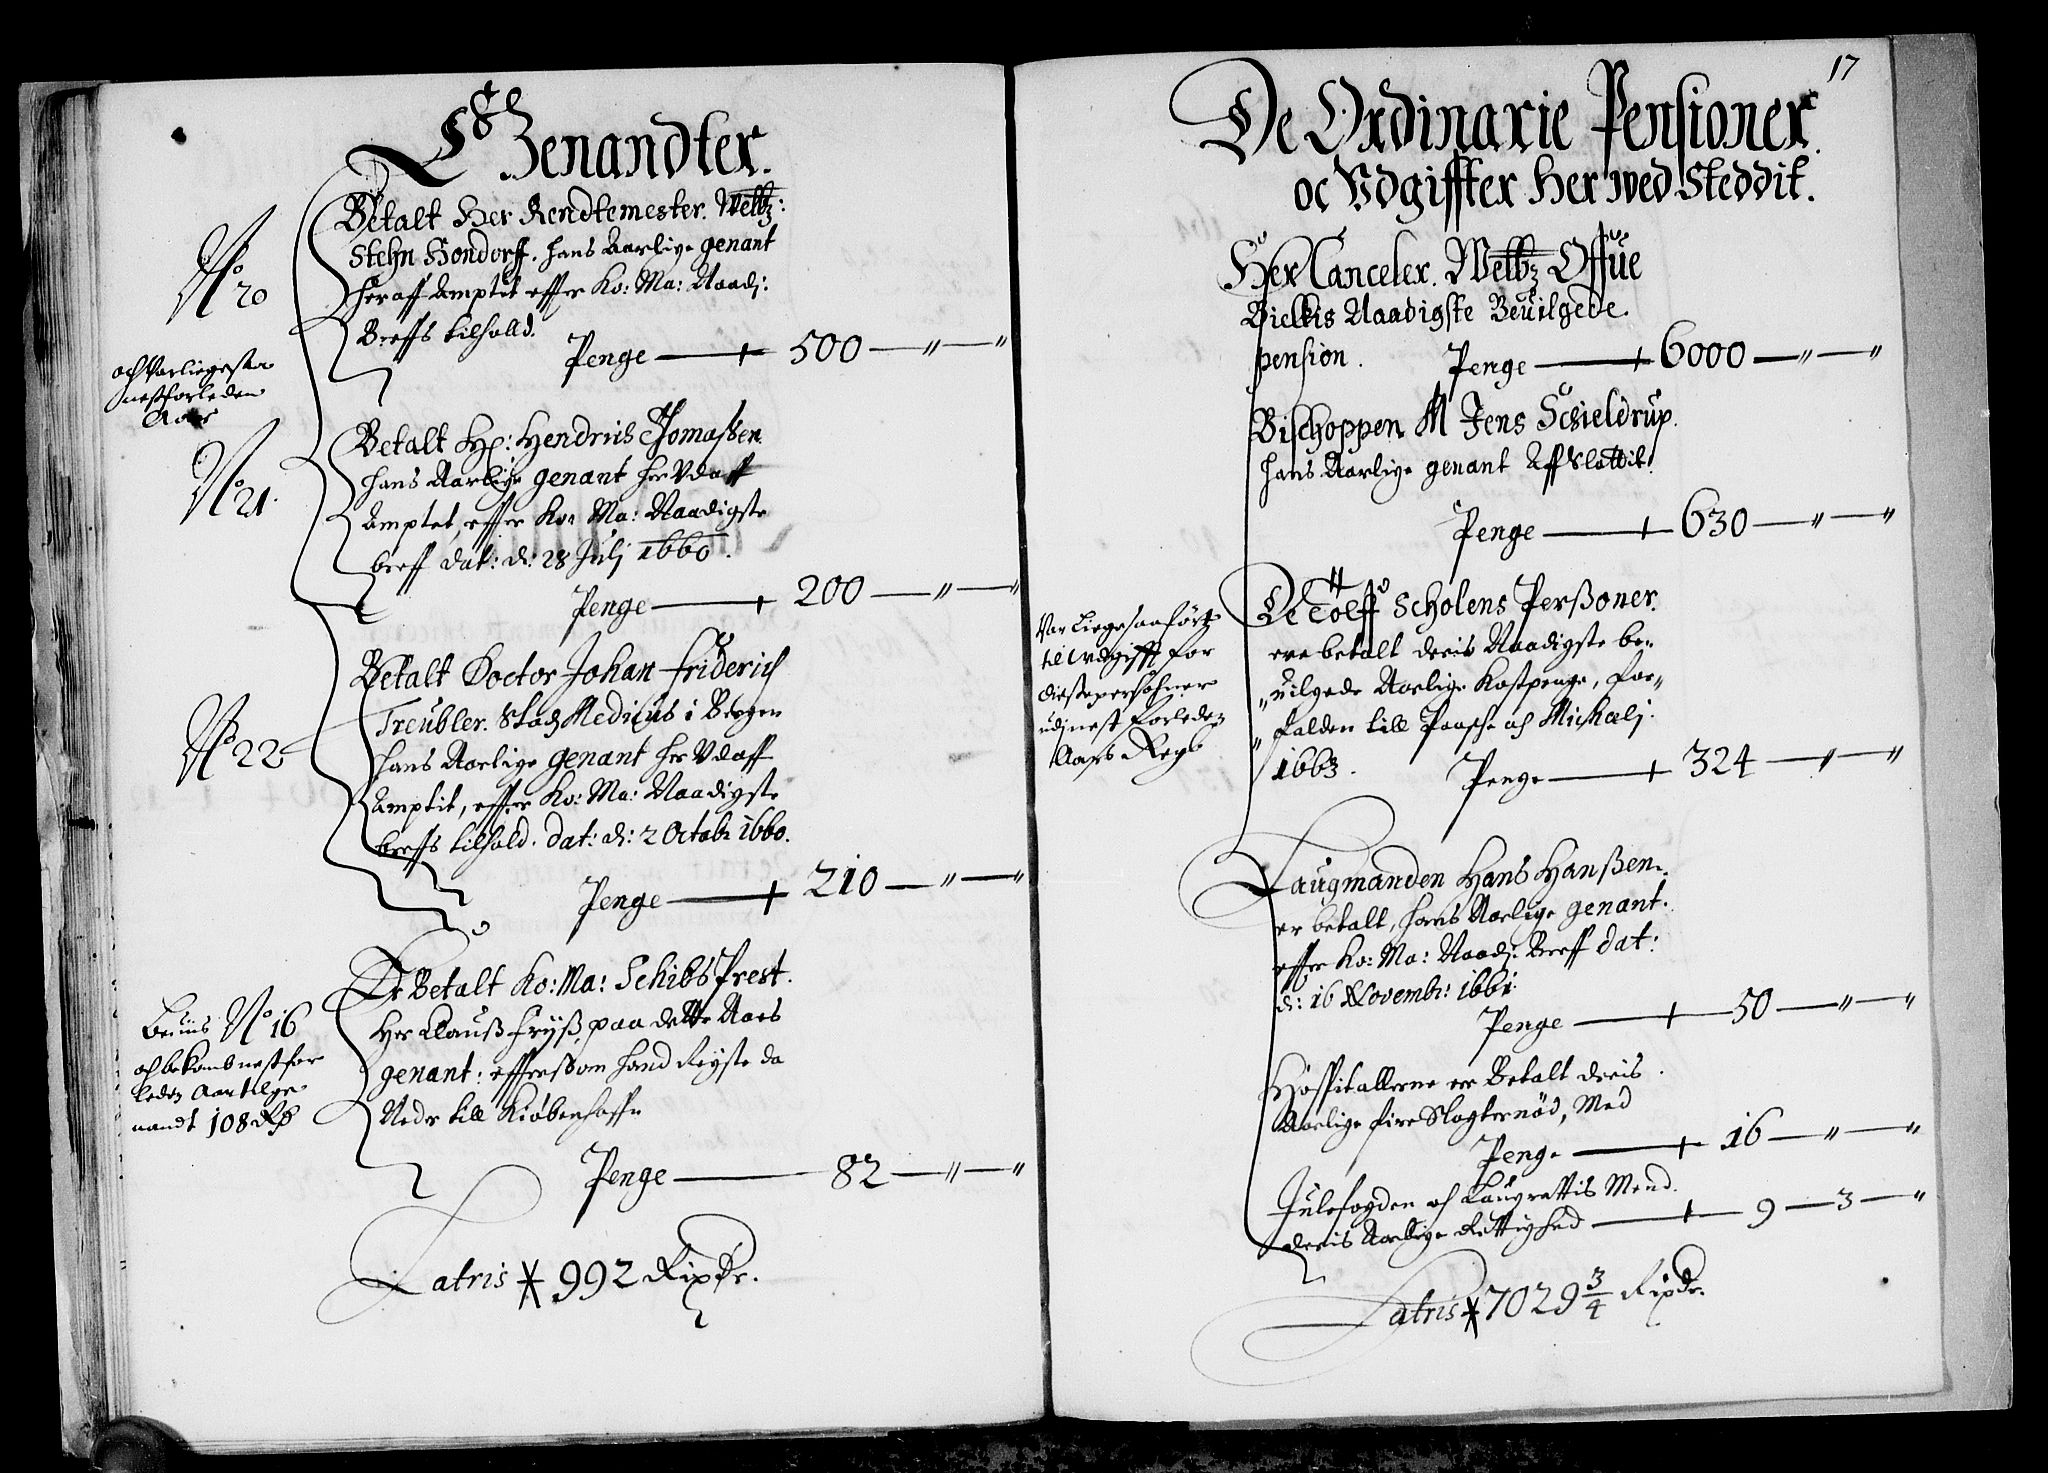 Genandter.
N° 20
Betalt Her Rendtemester. Welb:
Stehn Hondorff. hans Aarlige genant
her aff Amptit effter Ko: Ma: Naadj:
Breffs tilhold.
Penge — 500 — " — "
och Var liigesaa
nestforleden
Aar
N° 21.
Betalt Hr: Hendrich Thomassen
hans Aarlige genant her Vdaff
Amptet, effter Ko: Ma: Naadigste
breff dat: d: 28 Julj 1660.
Penge — 200 — " — "
N° 22
Betalt Doctor Johan Friderich
Treubler. Stadz Medicus i Bergen
hans Aarlige genant her Vdaff
Amptit, effter Ko: Ma: Naadigste
breffs tilhold. dat: d: 2 Octobr 1660.
Penge — 210 — " — "
Beuiis N° 16
och bekomb nestfor
leden Aar tilge
nandt 108 Rd
Er Betalt Ko: Ma: Schibs Prest.
Her Clauß Fryß, paa dette Aars
genant: effterssom hand Reyste da
Neder till Kiøbenhaffn
Penge — 82 — " — "
Latris 992 Rixdr.
17
De Ordinarie Pensioner
oc Vdgiffter Her wed Steddit.
Her Canceler. Welb Offue
Bielkis Naadigste Beuilgede
pension. Penge — 6000 — " — "
Bischoppen M Jens Schieldrup.
hans Aarlige genant Aff Slottit.
Penge — 630 — " — "
Var Liigesaa ført
til Udgifft for
disse persohner
udj nest forleden
Aars Regb
De Tolff Scholens Perßoner.
ere betalt deris Naadigste be-
uilgede Aarlige Kostpenge, for-
falden till Paasche och Michaelj.
1663. Penge — 324 — " — "
Laugmanden Hans Hanßen.
er betalt, hans Aarlige genant.
effter Ko: Ma: Naadj: Breff dat:
d: 16 Novembr: 1661.
Penge — 50 — " — "
Hospitallerne er Betalt deris
Aarlige fire Slagternød, Med
Penge — 16 — " — "
Julefogden och Laugrettis Mend.
deris Aarlige Rettighed — 9 — 3 — "
Latris 7029 3/4 Rixdr.